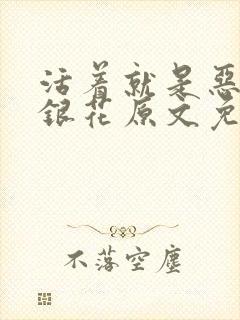 活着就是惡
銀花原文免
不落空塵